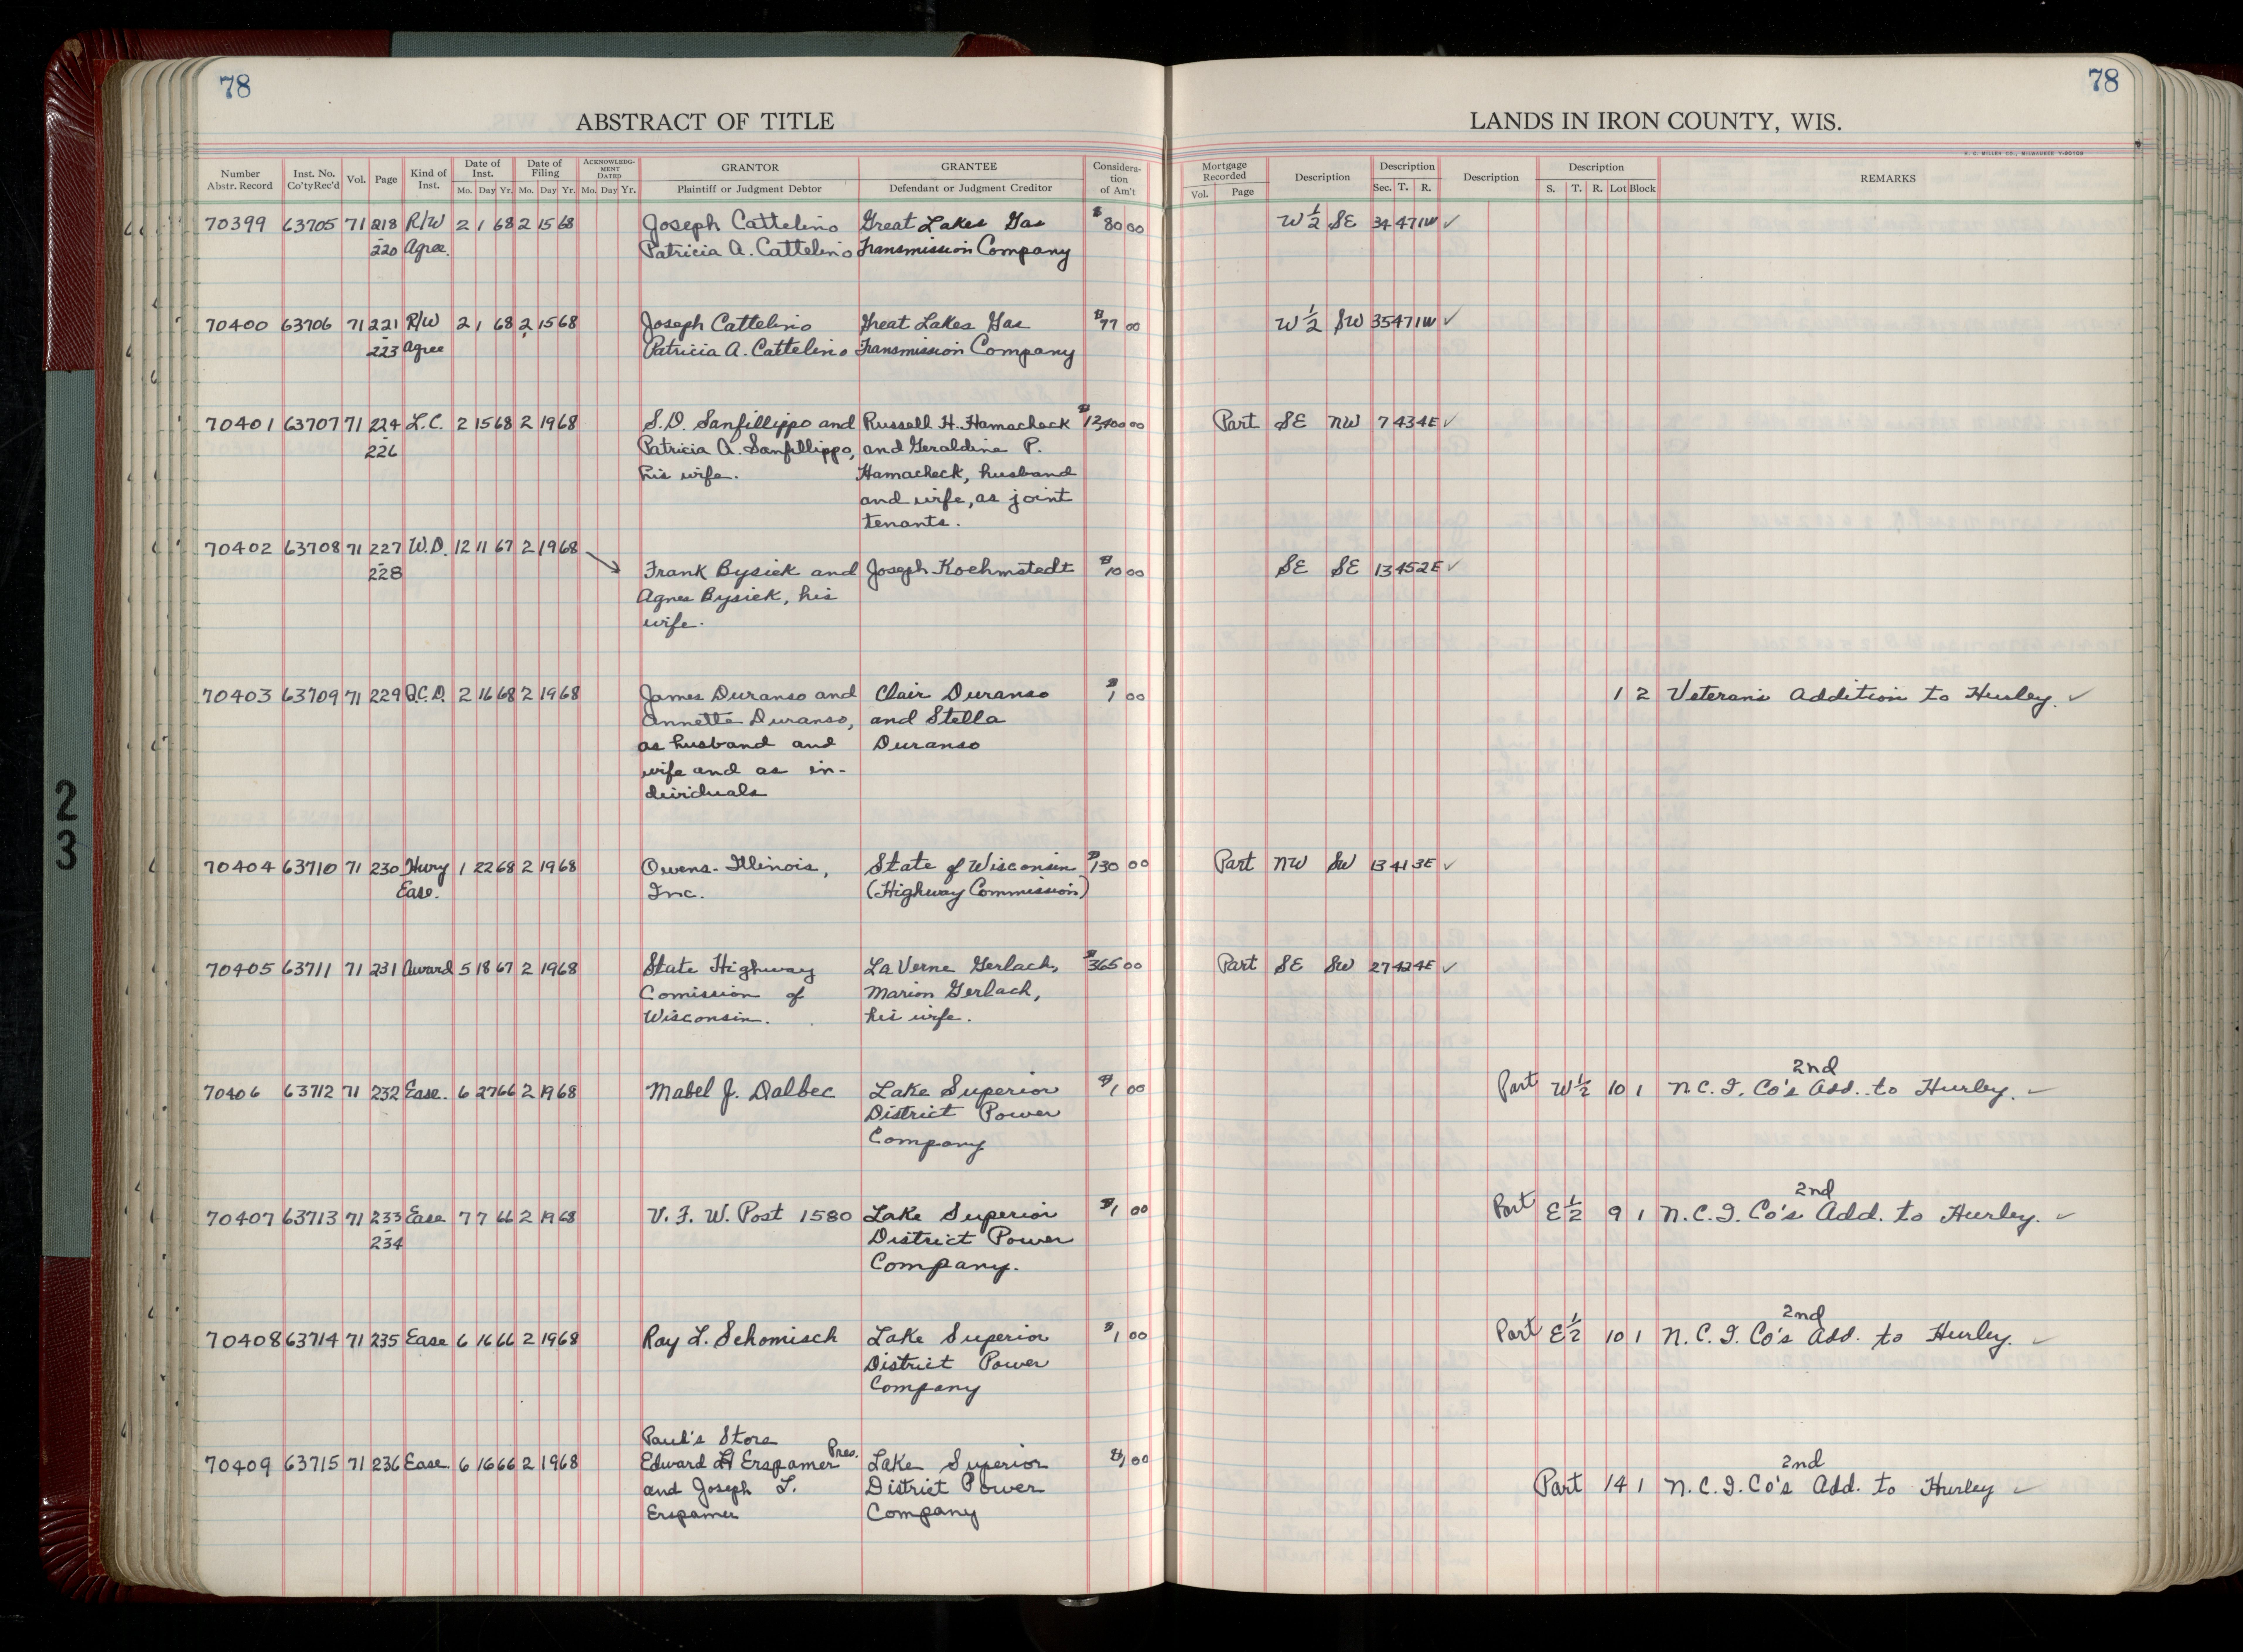 78
78
ABSTRACT OF TITLE
LANDS IN IRON COUNTY, WIS.
H. C. MILLER CO., MILWAUKEE
Number Abstr. Record
Inst. No. Co'ty Rec'd
Vol.
Page
Kind of Inst.
Date of Inst. Mo. Day Yr.
Date of Filing Mo. Day Yr.
ACKNOWLEDGMENT DATED Mo. Day Yr.
GRANTOR Plaintiff or Judgment Debtor
GRANTEE Defendant or Judgment Creditor
Consideration of Am't
Mortgage Recorded Vol. Page
Description
Description Sec. T. R.
Description
Description S. T. R. Lot Block
REMARKS
70399 63705 71 218 R/W 2 1 68 2 15 68 Joseph Cattelino Great Lakes Gas $80 00 W 1/2 SE 34 47 1W ✓
- 220 Agree. Patricia A. Cattelino Transmission Company
70400 63706 71 221 R/W 2 1 68 2 15 68 Joseph Cattelino Great Lakes Gas $77 00 W 1/2 SW 35 47 1W ✓
- 223 Agree Patricia A. Cattelino Transmission Company
70401 63707 71 224 L.C. 2 15 68 2 19 68 S.D. Sanfillippo and Russell H. Hamacheck $12,400 00 Part SE NW 7 43 4E ✓
- 226 Patricia A. Sanfillippo, and Geraldine P.
his wife. Hamacheck, husband
and wife, as joint
tenants.
70402 63708 71 227 W.D. 12 11 67 2 19 68
- 228 Frank Bysick and Joseph Koehmstedt $10 00 SE SE 13 45 2E ✓
Agnes Bysick, his
wife.
70403 63709 71 229 Q.C.D. 2 16 68 2 19 68 James Duranso and Clair Duranso $1 00 1 2 Veterans Addition to Hurley. ✓
Annette Duranso, and Stella
as husband and Duranso
wife and as in-
dividuals
70404 63710 71 230 Hwy 1 22 68 2 19 68 Owens-Illinois, State of Wisconsin $130 00 Part NW SW 13 41 3E ✓
Ease. Inc. (Highway Commission)
70405 63711 71 231 Award 5 18 67 2 19 68 State Highway La Verne Gerlach, $365 00 Part SE SW 27 42 4E ✓
Comission of Marion Gerlach,
Wisconsin. his wife.
2nd
70406 63712 71 232 Ease. 6 27 66 2 19 68 Mabel J. Dalbec Lake Superior $1 00 Part W 1/2 10 1 N.C.I. Co's Add. to Hurley. ✓
District Power
Company
2nd
70407 63713 71 233 Ease 7 7 66 2 19 68 V.F.W. Post 1580 Lake Superior $1 00 Part E 1/2 9 1 N.C.I. Co's Add. to Hurley. ✓
- 234 District Power
Company.
2nd
70408 63714 71 235 Ease 6 16 66 2 19 68 Ray L. Schomisch Lake Superior $1 00 Part E 1/2 10 1 N.C.I. Co's Add. to Hurley. ✓
District Power
Company
Paul's Store
2nd
70409 63715 71 236 Ease. 6 16 66 2 19 68 Edward Erspamer Pres. Lake Superior $1 00
and Joseph L. District Power Part 14 1 N.C.I. Co's Add. to Hurley ✓
Erspamer Company
2
3